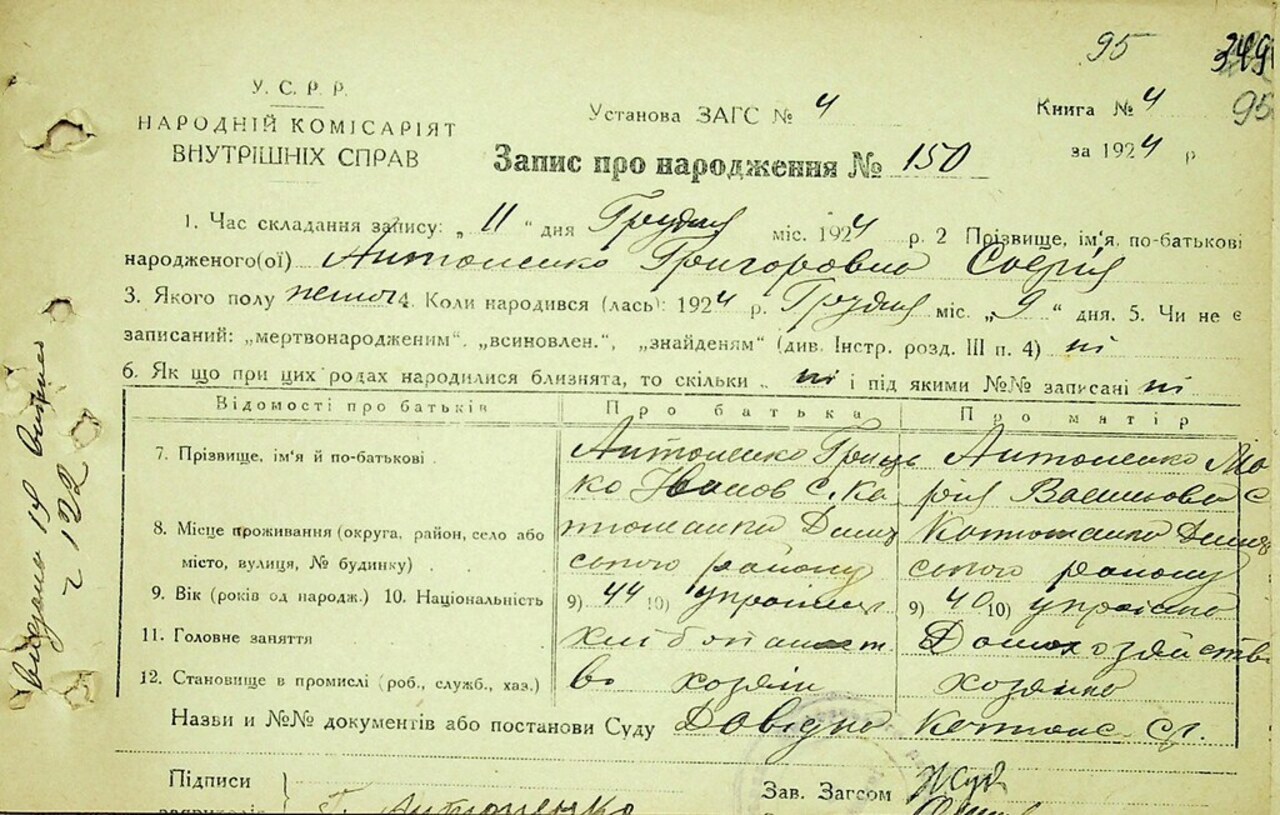 95 349
У. С. Р. Р.
НАРОДНІЙ КОМІСАРІЯТ
ВНУТРІШНІХ СПРАВ
Установа ЗАГС № 4
Книга № 4 95
за 1924 р
Запис про народження № 150
1. Час складання запису: „ 11 “ дня Грудня міс. 1924 р. 2 Прізвище, ім'я, по-батькові
народженого(ої) Антоненко Григоровна Софія
3. Якого полу 4. Коли народився (лась): 1924 р. Грудня міс. „ 9 “ дня. 5. Чи не є
записаний: „мертвонародженим“. „всиновлен.“, „знайденям“ (див. Інстр. розд. III п. 4) ні
6. Як що при цих родах народилися близнята, то скільки ні і під якими №№ записані ні
Відомості про батьків Про батька Про матір
7. Прізвище, ім'я й по-батькові Антоненко Гриць Антоненко Ма
ко Іванов с. Ка рія Васильова с
8. Місце проживання (округа, район, село або тюжанка Дими Катюжанка Дими
місто, вулиця, № будинку) ського району ського району
9. Вік (років од народж.) 10. Національність 9) 44 10) українец 9) 40 10) українка
11. Головне заняття хлібопашест Домохозяйств
12. Становище в промислі (роб., служб., хаз.) во хозяін хозяйка
Назви и №№ документів або постанови Суду Довідка
Підписи
Т. Антоненко
Зав. Загсом
видано